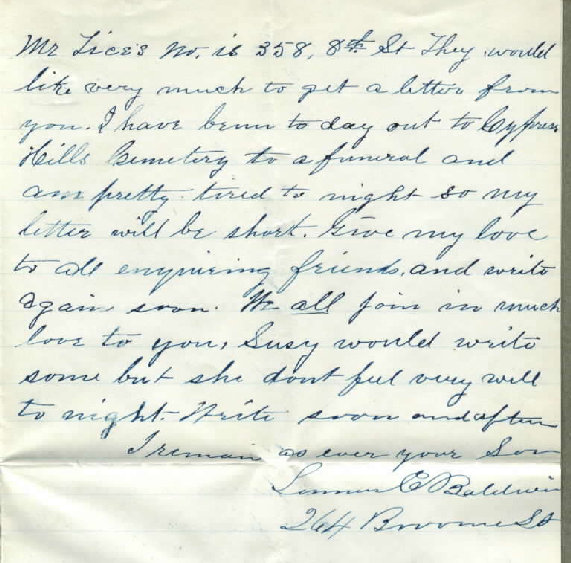 Mr Tice's No. is 358, 8th St They would
like very much to get a letter from
you. I have benn to day out to Cypress
Hills Cemetery to a funeral and
am pretty tired to night so my
letter will be short. Give my love
to all enquiring friends, and write
again soon. We all join in much
love to you, Susy would write
some but she dont feel very well
to night Write soon and often
I remain as ever your Son
E Baldwin
264 Broome St